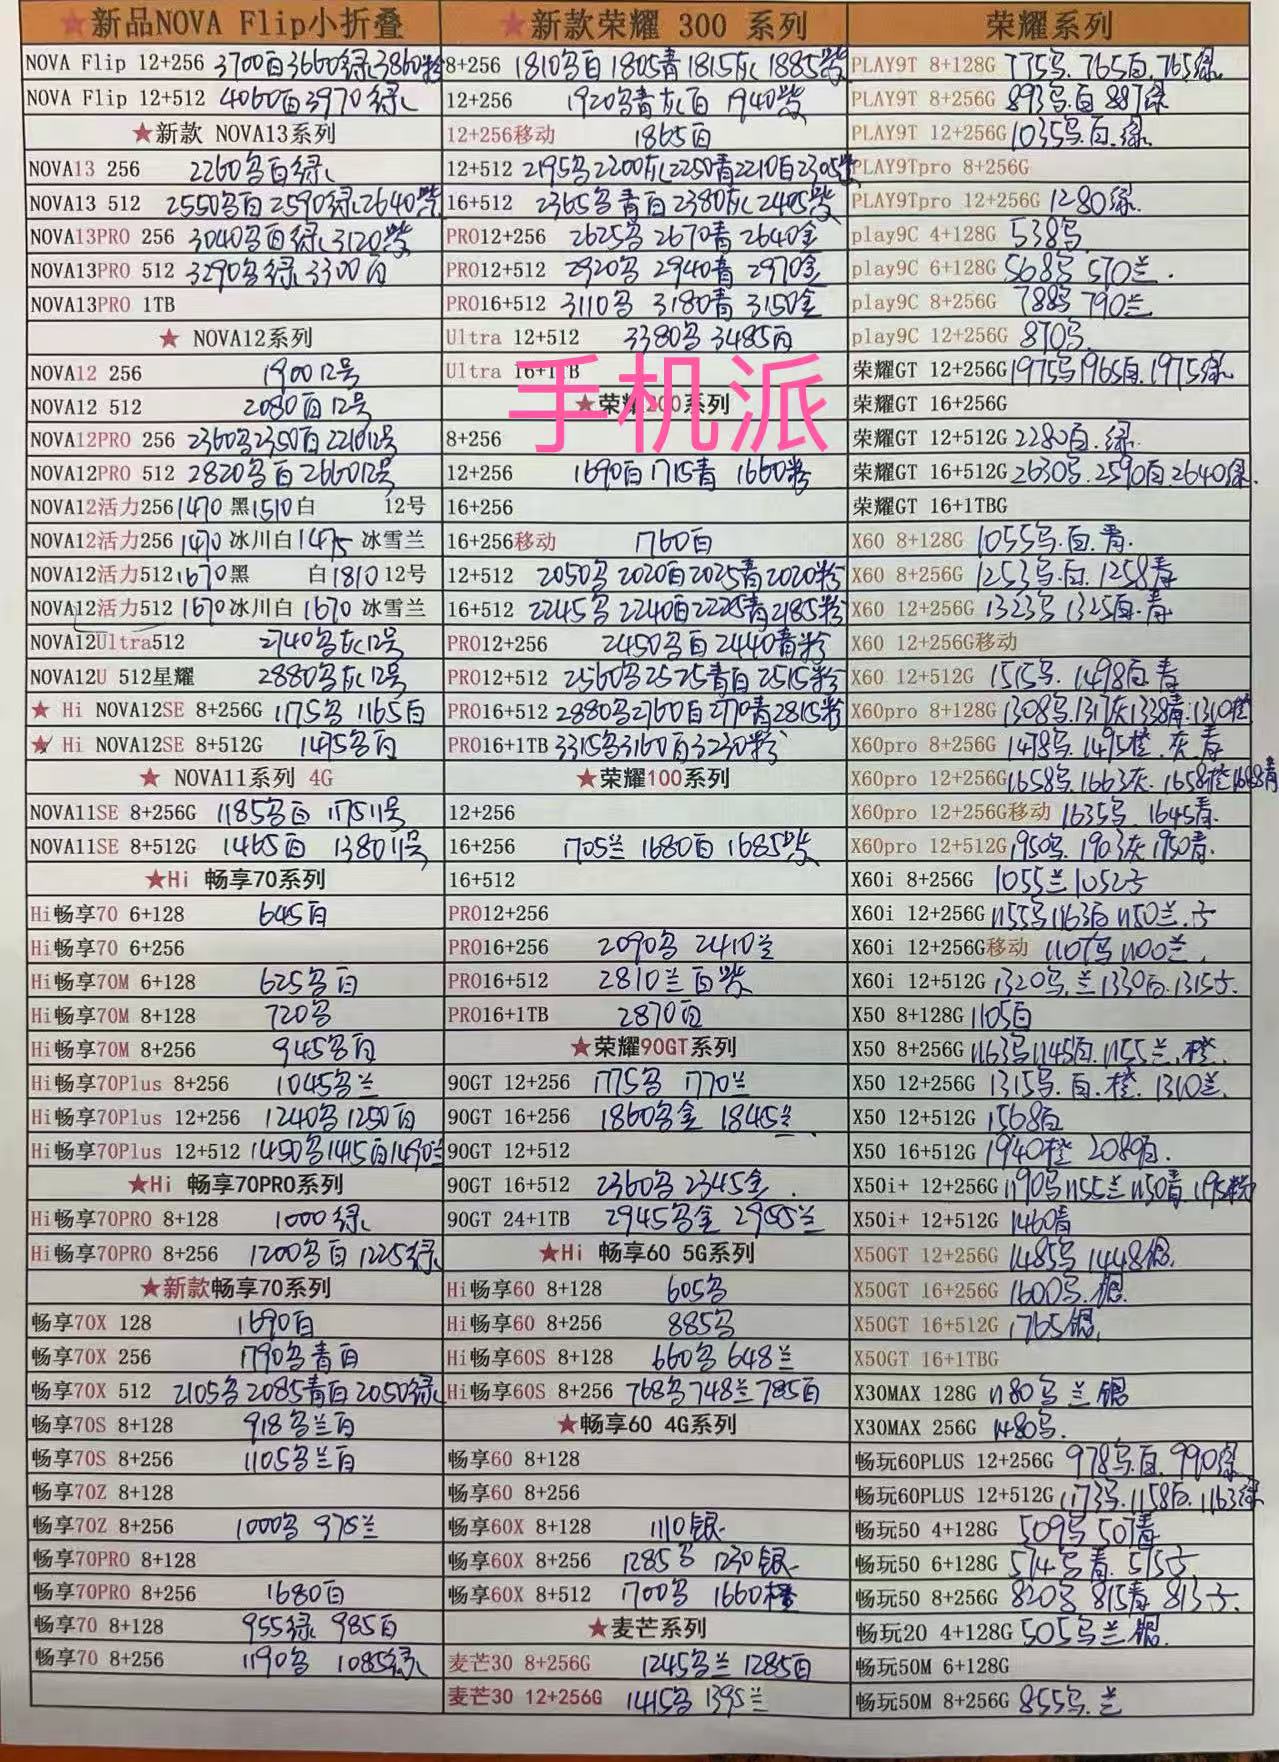 ★新品NOVA Flip小折叠
NOVA Flip 12+256 3700白3660绿3860粉
NOVA Flip 12+512 4060白3970绿
★新款 NOVA13系列
NOVA13 256 2260白绿
NOVA13 512 2550白2590绿2640紫
NOVA13PRO 256 3040白绿3120紫
NOVA13PRO 512 3290绿3300白
NOVA13PRO 1TB
★ NOVA12系列
NOVA12 256 1900 12号
NOVA12 512 2080白12号
NOVA12PRO 256 2360 2350白2210 12号
NOVA12PRO 512 2820白2660 12号
NOVA12活力256 1470 黑1510白 12号
NOVA12活力256 1470 冰川白1475 冰雪兰
NOVA12活力512 1670黑 白1810 12号
NOVA12活力512 1670冰川白 1670 冰雪兰
NOVA12Ultra512 2740灰12号
NOVA12U 512星耀 2880灰12号
★ Hi NOVA12SE 8+256G 1175 1165白
★ Hi NOVA12SE 8+512G 1475白
★ NOVA11系列 4G
NOVA11SE 8+256G 1185白 1175 11号
NOVA11SE 8+512G 1465白 1380 11号
★Hi 畅享70系列
Hi畅享70 6+128 645白
Hi畅享70 6+256
Hi畅享70M 6+128 625白
Hi畅享70M 8+128 720
Hi畅享70M 8+256 945白
Hi畅享70Plus 8+256 1045兰
Hi畅享70Plus 12+256 1240 1250白
Hi畅享70Plus 12+512 1450 1415白1490兰
★Hi 畅享70PRO系列
Hi畅享70PRO 8+128 1000绿
Hi畅享70PRO 8+256 1200白 1225绿
★新款畅享70系列
畅享70X 128 1690白
畅享70X 256 1790青白
畅享70X 512 2105 2085青白2050绿
畅享70S 8+128 918兰白
畅享70S 8+256 1105兰白
畅享70Z 8+128
畅享70Z 8+256 1000 975兰
畅享70PRO 8+128
畅享70PRO 8+256 1680白
畅享70 8+128 955绿 985白
畅享70 8+256 1190 1085绿
★新款荣耀 300 系列
8+256 1810白 1805青1815灰 1885紫
12+256 1920青灰白 1940紫
12+256移动 1865白
12+512 2195 2200灰2250青2210白2305紫
16+512 2365青白2380灰2405紫
PRO12+256 2625 2670青 2640金
PRO12+512 2920 2940青 2970金
PRO16+512 3110 3180青 3150金
Ultra 12+512 3380 3485白
Ultra 16+1TB
手机派
★荣耀200系列
8+256
12+256 1690白 1715青 1660粉
16+256
16+256移动 1760白
12+512 2050 2020白2025青2020粉
16+512 2245 2240白2225青2185粉
PRO12+256 2450白 2440青粉
PRO12+512 2560 2525青白 2515粉
PRO16+512 2880 2760白2770青2815粉
PRO16+1TB 3315 3160白3230粉
★荣耀100系列
12+256
16+256 1705兰 1680白 1685紫
16+512
PRO12+256
PRO16+256 2090 2410兰
PRO16+512 2810兰白紫
PRO16+1TB 2870白
★荣耀90GT系列
90GT 12+256 1775 1770兰
90GT 16+256 1860金 1845兰
90GT 12+512
90GT 16+512 2360 2345金
90GT 24+1TB 2945金 2955兰
★Hi 畅享60 5G系列
Hi畅享60 8+128 605
Hi畅享60 8+256 885
Hi畅享60S 8+128 660 648兰
Hi畅享60S 8+256 768 748兰785白
★畅享60 4G系列
畅享60 8+128
畅享60 8+256
畅享60X 8+128 1110银
畅享60X 8+256 1285 1230银
畅享60X 8+512 1700 1660橙
★麦芒系列
麦芒30 8+256G 1245兰 1285白
麦芒30 12+256G 1415 1395兰
荣耀系列
PLAY9T 8+128G 775. 765白. 765绿
PLAY9T 8+256G 893.白 887绿
PLAY9T 12+256G 1035.白.绿
PLAY9Tpro 8+256G
PLAY9Tpro 12+256G 1280绿.
play9C 4+128G 538
play9C 6+128G 568 570兰.
play9C 8+256G 788 790兰
play9C 12+256G 870
荣耀GT 12+256G 1975 1965白.1975绿
荣耀GT 16+256G
荣耀GT 12+512G 2280白.绿.
荣耀GT 16+512G 2630.2590白.2640绿.
荣耀GT 16+1TBG
X60 8+128G 1055.白.青.
X60 8+256G 1253.白.1258青
X60 12+256G 1323 1325白.青
X60 12+256G移动
X60 12+512G 1515. 1498白.青
X60pro 8+128G 1308.1317灰1338青.1310橙
X60pro 8+256G 1478.1495橙.灰.青
X60pro 12+256G 1658.1663灰.1658橙1688青
X60pro 12+256G移动 1635. 1645青.
X60pro 12+512G 1950. 1903灰 1950青.
X60i 8+256G 1055兰1052
X60i 12+256G 1155 1163白 1150兰.
X60i 12+256G移动 1107 1100兰.
X60i 12+512G 1320.兰1330白.1315.
X50 8+128G 1105白
X50 8+256G 1163 1145白.1155兰.橙.
X50 12+256G 1315.白.橙.1310兰.
X50 12+512G 1568白
X50 16+512G 1940橙 2080白.
X50i+ 12+256G 1190 1155兰1150青.1195粉
X50i+ 12+512G 1460青
X50GT 12+256G 1485 1448银.
X50GT 16+256G 1600.银.
X50GT 16+512G 1765银.
X50GT 16+1TBG
X30MAX 128G 1180兰银
X30MAX 256G 1480.
畅玩60PLUS 12+256G 978.白.990绿
畅玩60PLUS 12+512G 1173.1158白.1163绿
畅玩50 4+128G 509 507青
畅玩50 6+128G 574青.575
畅玩50 8+256G 820 815青 813.
畅玩20 4+128G 505兰银.
畅玩50M 6+128G
畅玩50M 8+256G 855.兰